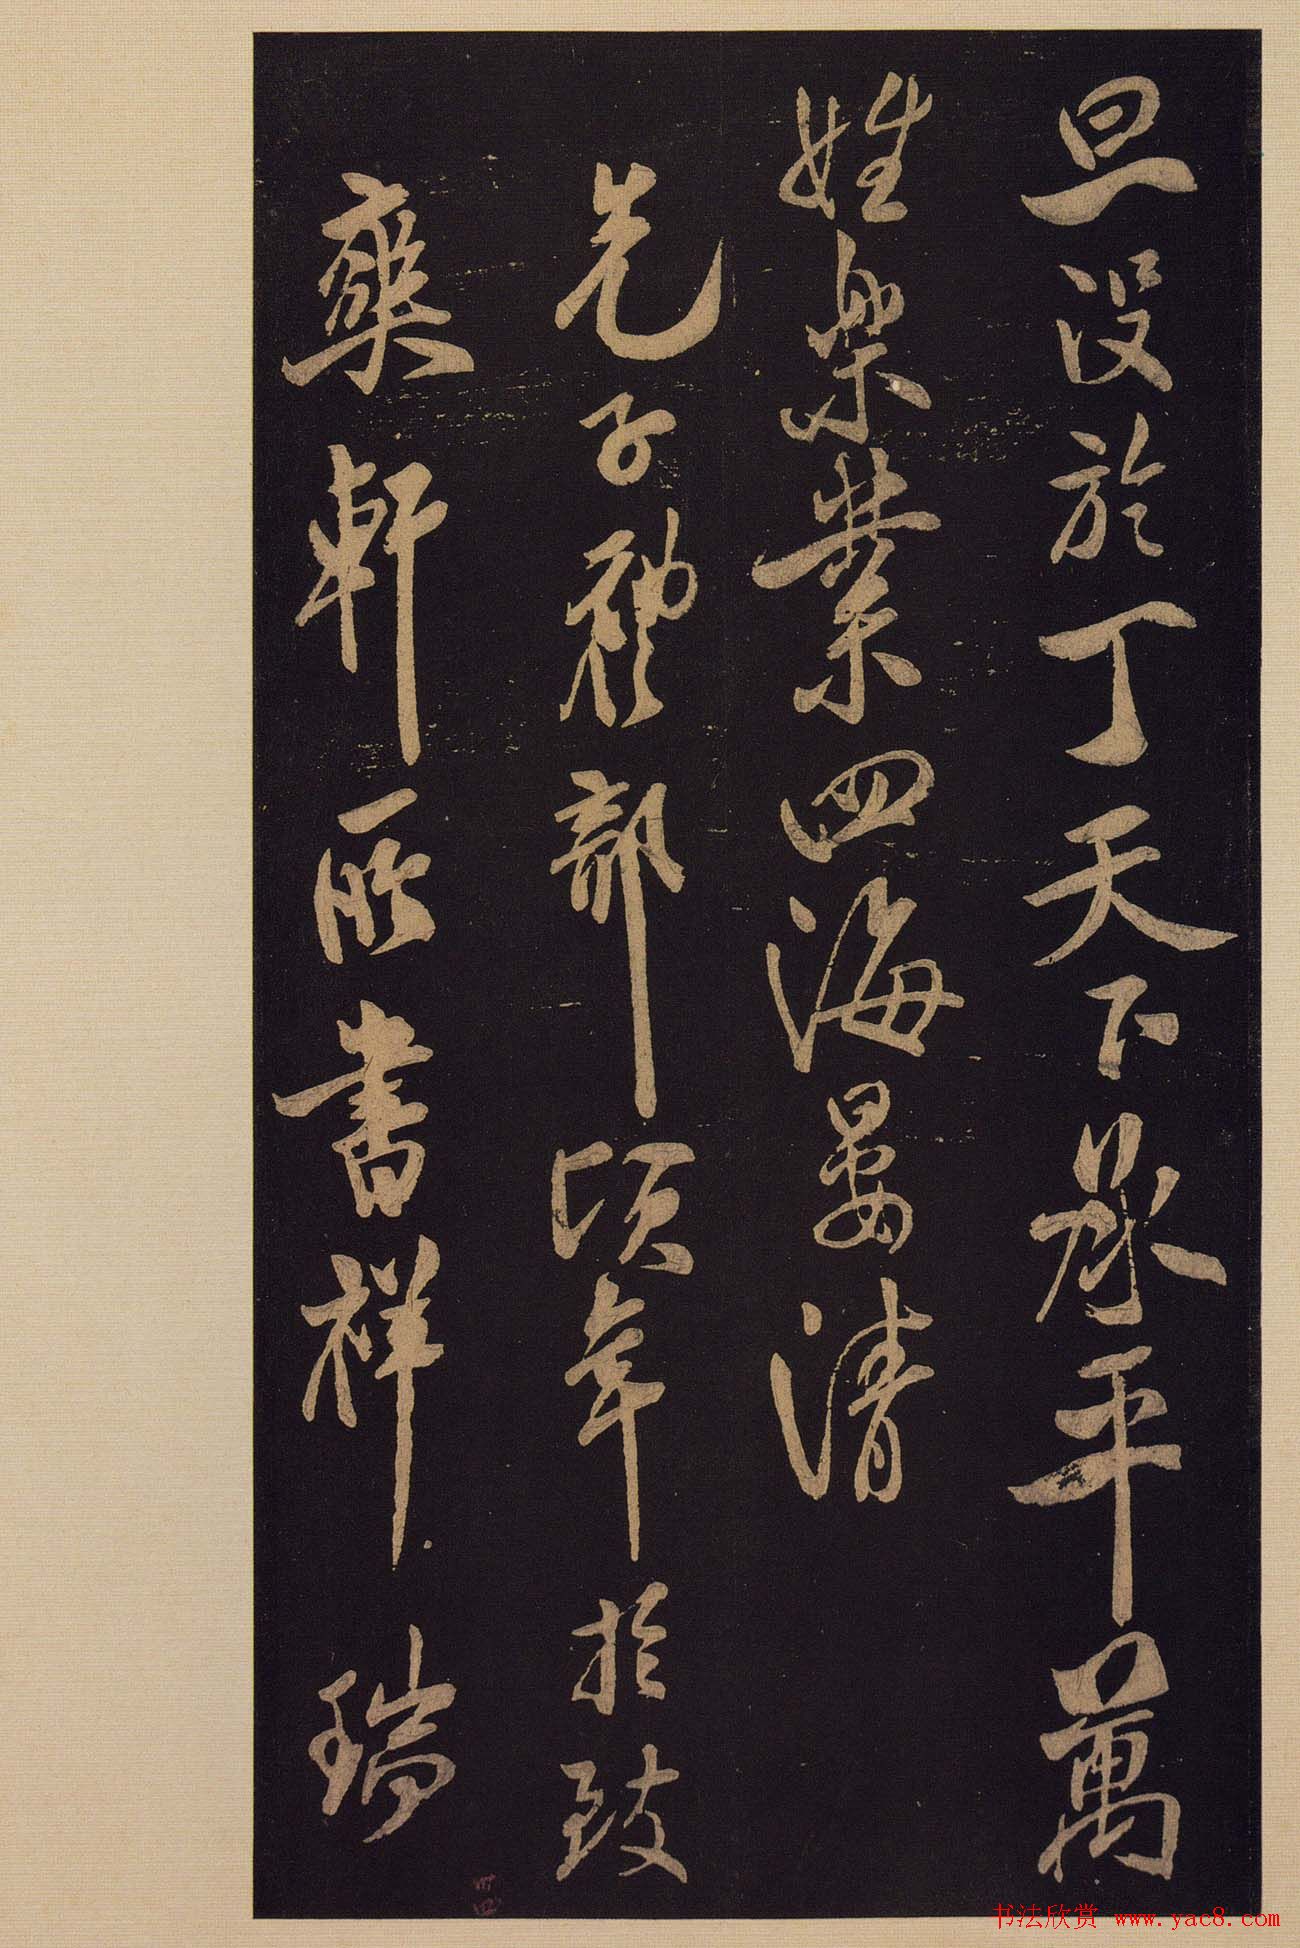 旦沒於丁天下承平萬
姓樂業四海晏清
先子禮部頃年於致
爽軒所書祥瑞
书法欣赏 www.yac8.com